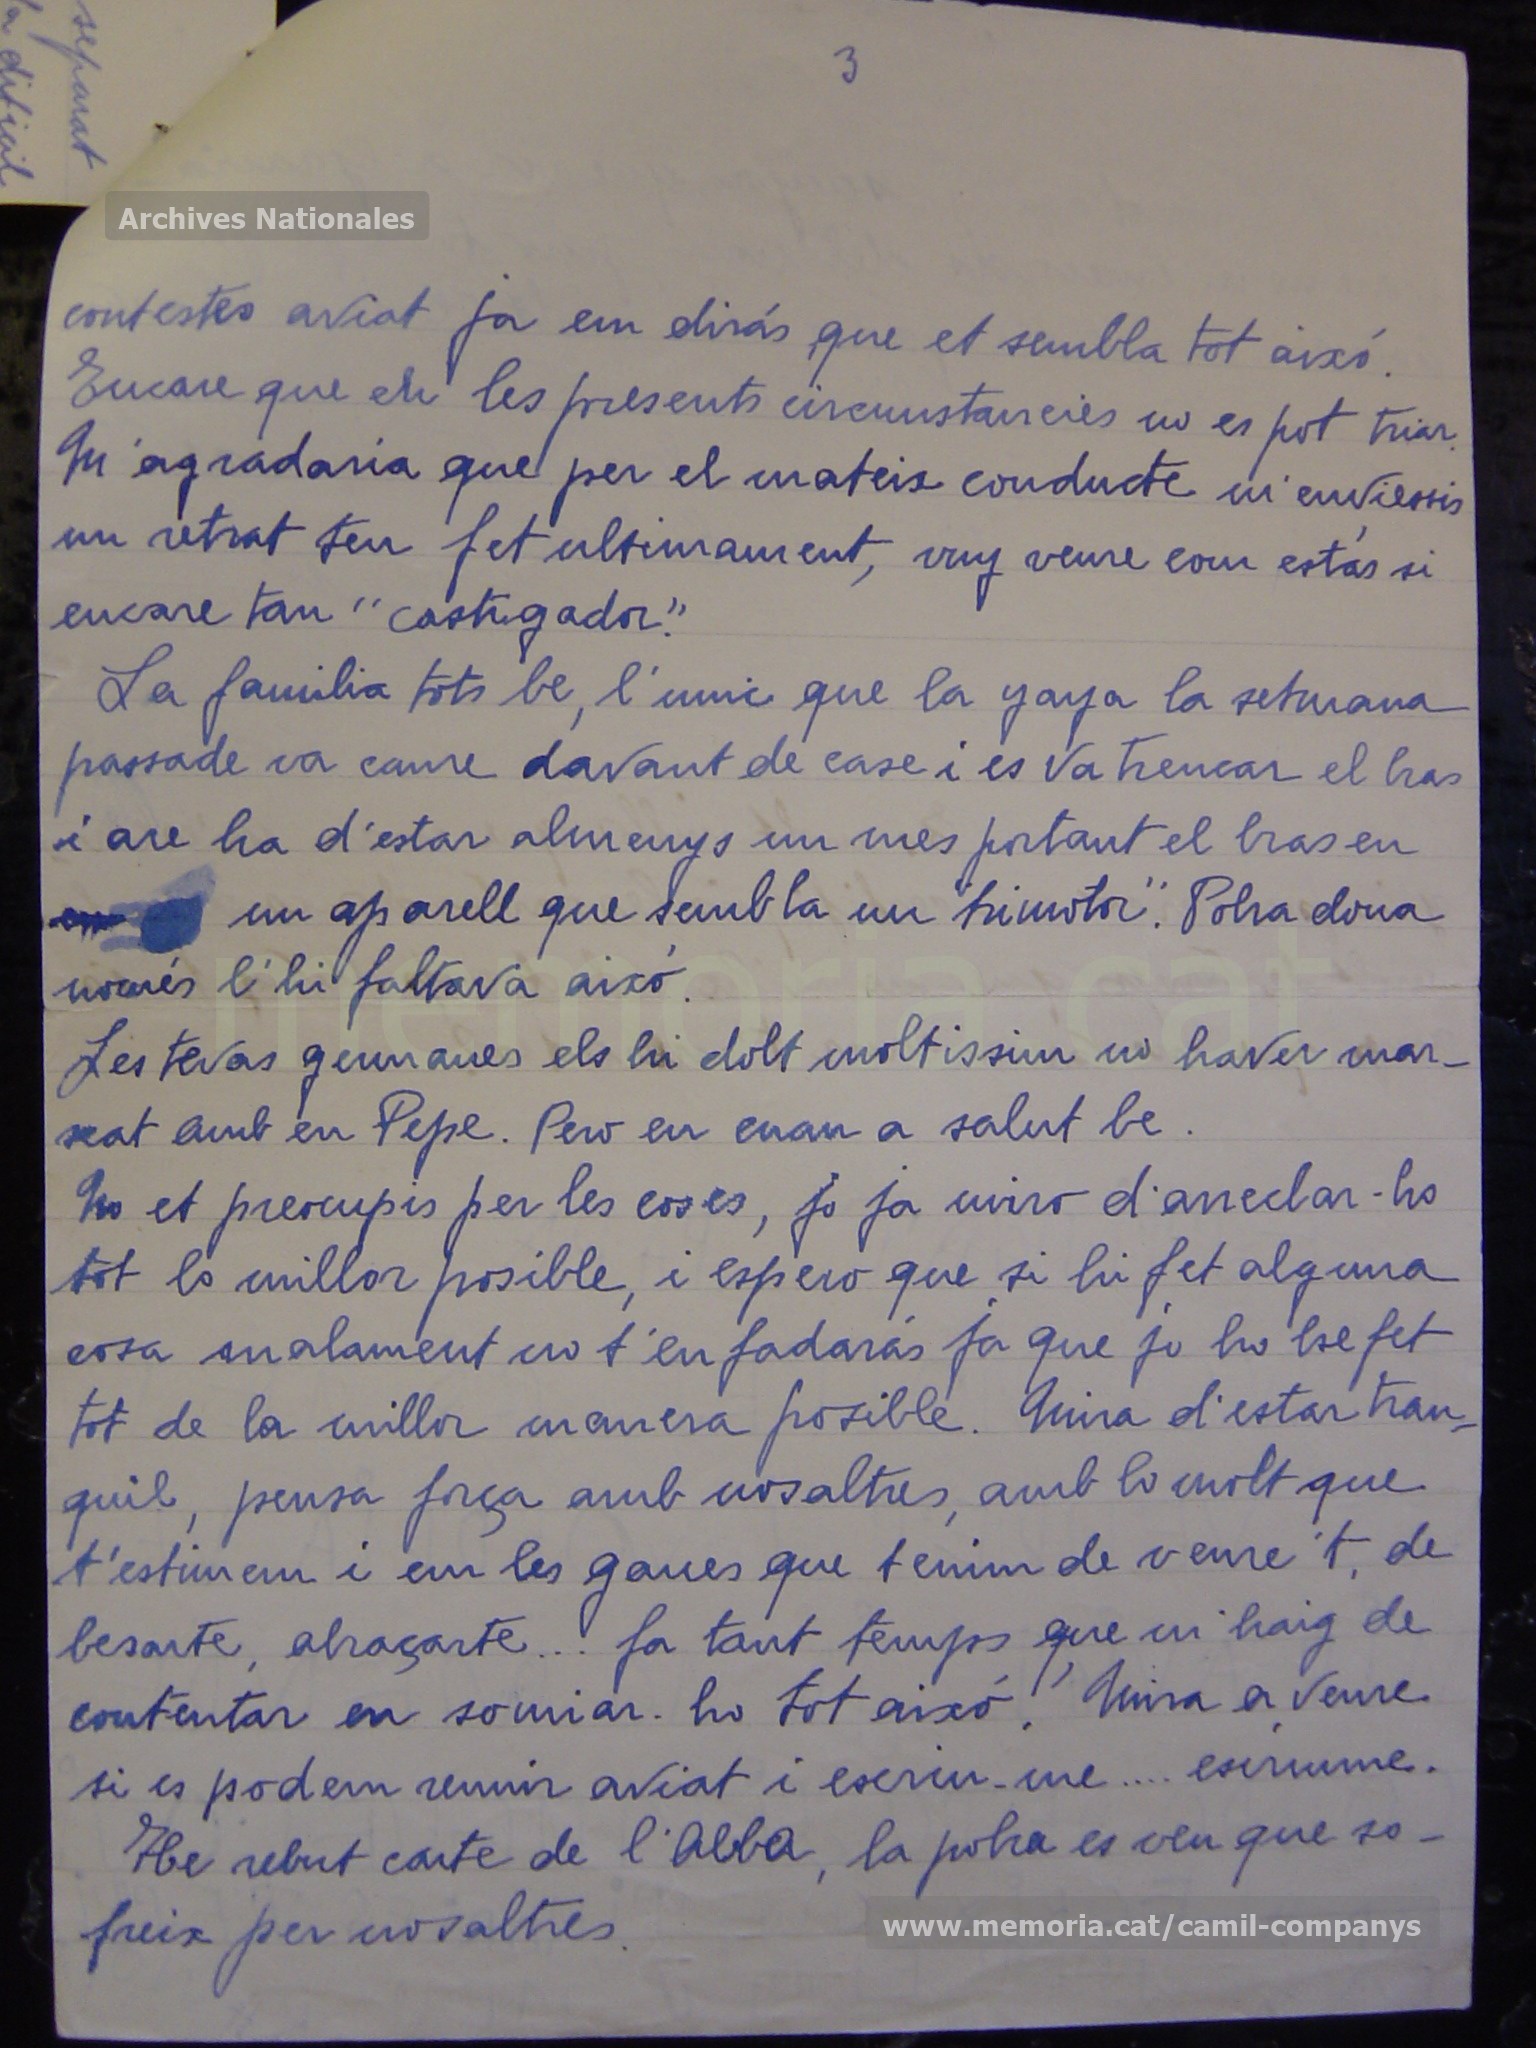 separat
difícil
3
Archives Nationales
contestes aviat ja em dirás que et sembla tot aixó.
Encare que en les presents circumstancies no es pot triar.
M'agradaria que per el mateix conducte m'enviessis
un retrat teu fet ultimament, vuy veure com estás si
encare tan "castigador".
La familia tots be, l'unic que la yaya la setmana
passade va caure davant de case i es va trencar el bras
i are ha d'estar almenys un mes portant el bras en
un aparell que sembla un "trimotor". Pobra dona
només l'hi faltava aixó.
Les tevas germanes els hi dolt moltissim no haver mar-
xat amb en Pepe. Pero en cuan a salut be.
No et preocupis per les coses, jo ja miro d'arreclar-ho
tot lo millor posible, i espero que si hi fet alguna
cosa malament no t'enfadarás ja que jo ho he fet
tot de la millor manera posible. Mira d'estar tran-
quil, pensa força amb nosaltres, amb lo molt que
t'estimem i em les ganes que tenim de veure't, de
besarte, abraçarte... fa tant temps que m'haig de
contentar en somiar-ho tot aixó! Mira a veure
si es podem reunir aviat i escriu-me .... escriume.
He rebut carte de l'Alba, la pobra es veu que so-
freix per nosaltres.
memoria.cat
www.memoria.cat/camil-companys